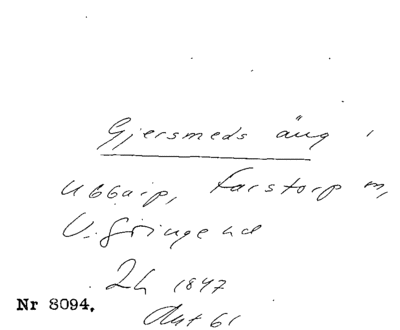 Gjersmeds äng i
Ubbarp, Farstorp m,
V. Göinge hd
2h 1847
Akt 61
Nr 8094.